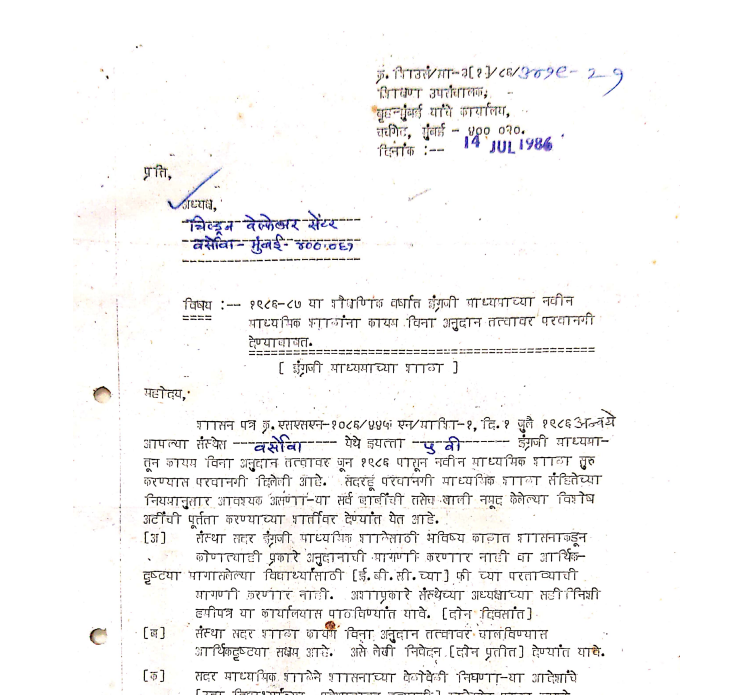 क्र. शिउसं/मा-३[१]/८६/
शिक्षण उपसंचालक,
बृहन्मुंबई यांचे कार्यालय,
मुंबई - ४०० ०२०.
दिनांक :-- 14 JUL 1986
प्रति,
अध्यक्ष,
चिल्ड्रन वेल्फेअर सेंटर
वर्सोवा - मुंबई - ४०००६१
विषय :-- १९८६-८७ या शैक्षणिक वर्षात इंग्रजी माध्यमाच्या नवीन
माध्यमिक शाळांना कायम विना अनुदान तत्वावर परवानगी
देण्याबाबत.
[ इंग्रजी माध्यमाच्या शाळा ]
महोदय,
शासन पत्र क्र. एसएसएन-१०८६/४४५ एन/माशि-१, दि. १ जुलै १९८६ अन्वये
आपल्या संस्थेस वर्सोवा येथे इयत्ता ५ वी इंग्रजी माध्यमा-
तून कायम विना अनुदान तत्वावर जून १९८६ पासून नवीन माध्यमिक शाळा सुरु
करण्यास परवानगी दिलेली आहे. सदरहू परवानगी माध्यमिक शाळा संहितेच्या
नियमानुतार आवश्यक असणा-या सर्व बाबींची तसेच खाली नमूद केलेल्या विशेष
अटींची पूर्तता करण्याच्या शर्तीवर देण्यांत येत आहे.
[अ] संस्था सदर इंग्रजी माध्यमिक शाळेसाठी भविष्य काळात शासनाकडून
कोणत्याही प्रकारे अनुदानाची मागणी करणार नाही वा आर्थिक-
दृष्टया मागासलेल्या विद्यार्थ्यांसाठी [ई.बी.सी.च्या] फी च्या परताव्याची
मागणी करणार नाही. अशाप्रकारे संस्थेच्या अध्यक्षाच्या सही निशी
हमीपत्र या कार्यालयास पाठविण्यांत यावे. [दोन दिवसांत]
[ब] संस्था सदर शाळा कायम विना अनुदान तत्वावर चालविण्यास
आर्थिकदृष्टया सक्षम आहे. असे लेखी निवेदन [दोन प्रतीत] देण्यांत यावे.
[क] सदर माध्यमिक शाळेने शासनाच्या वेळोवेळी निघणा-या आदेशांचे